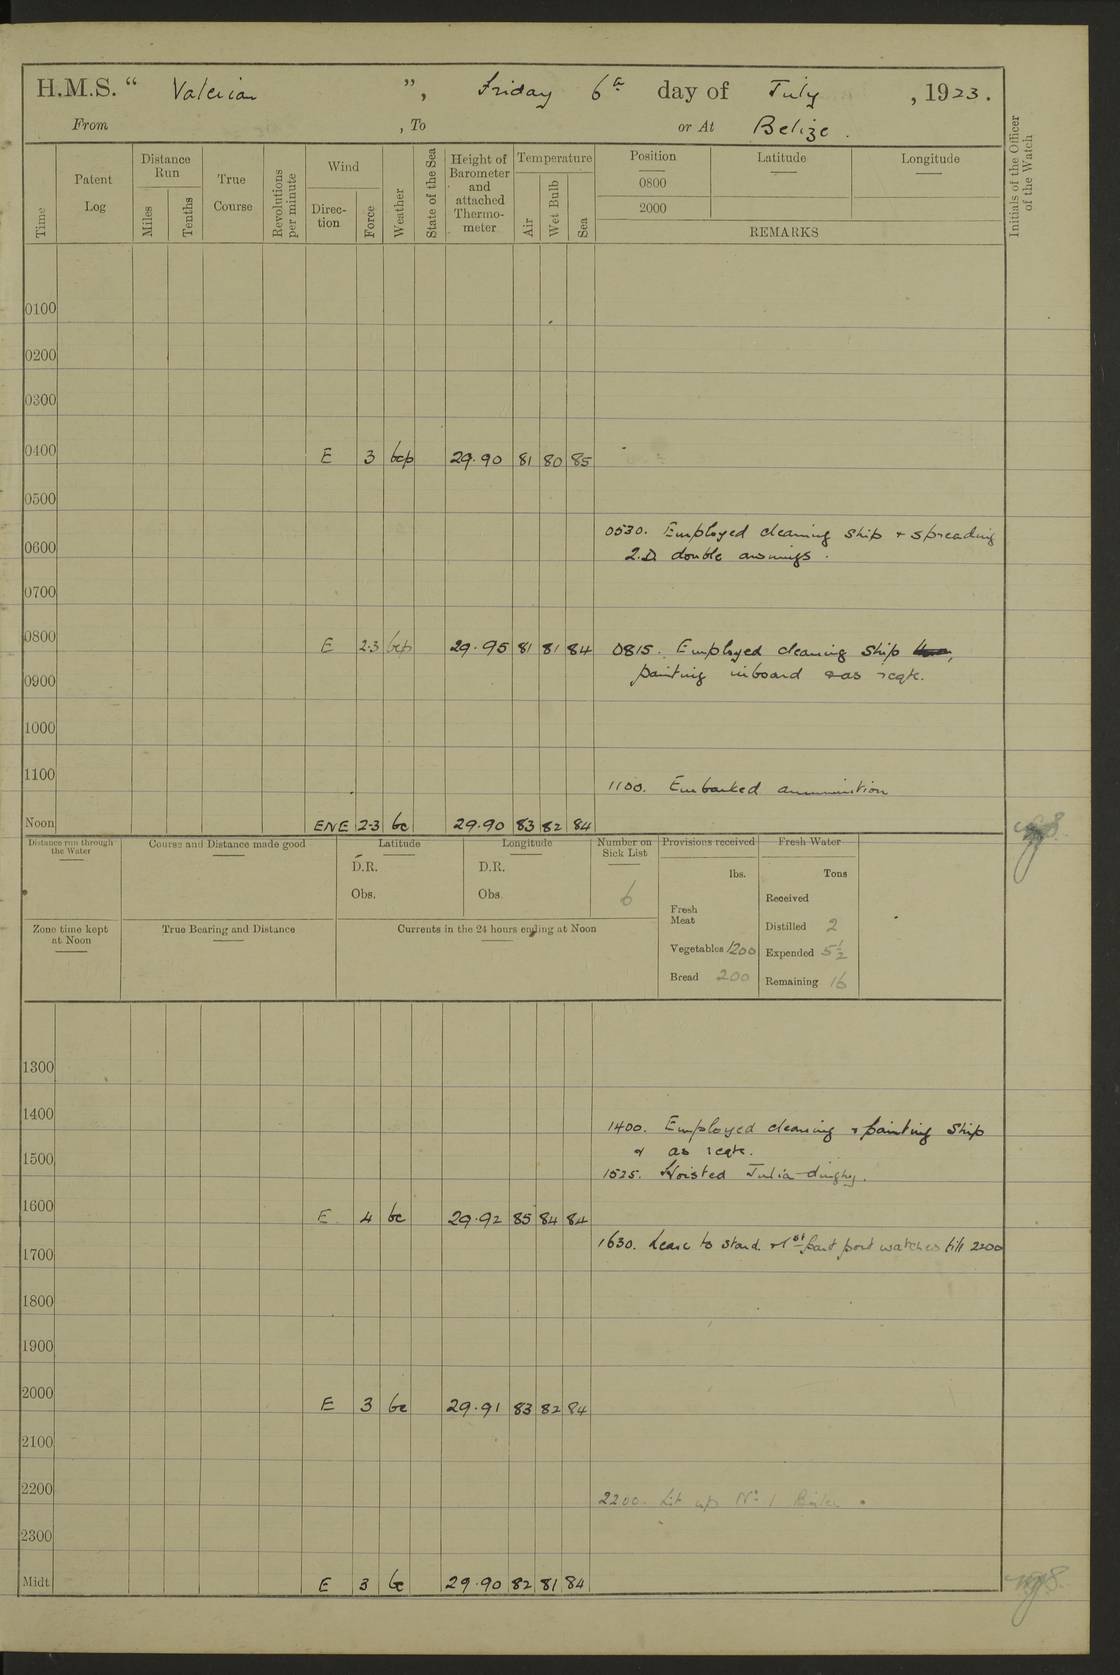 H.M.S. “ Valerian ”, Friday 6th day of July , 1923.
From , To or At Belize .
Time
Patent Log
Distance Run
Miles
Tenths
True Course
Revolutions per minute
Wind
Direction
Force
Weather
State of the Sea
Height of Barometer and attached Thermometer
Temperature
Air
Wet Bulb
Sea
Position
Latitude
Longitude
0800
2000
REMARKS
Initials of the Officer of the Watch
0100
0200
0300
0400 E 3 bcp 29.90 81 80 85
0500
0530. Employed cleaning ship + spreading
0600 2.D. double awnings .
0700
0800 E 2-3 bcp 29.95 81 81 84 0815. Employed cleaning ship ,
0900 painting inboard & as reqte.
1000
1100 1100. Embarked ammunition
Noon ENE 2-3 bc 29.90 83 82 84
Distance run through the Water
Course and Distance made good
Latitude
D.R.
Obs.
Longitude
D.R.
Obs.
Number on Sick List
6
Provisions received
lbs.
Fresh Meat
Vegetables 1200
Bread 200
Fresh Water
Tons
Received
Distilled 2
Expended 5½
Remaining 16
Zone time kept at Noon
True Bearing and Distance
Currents in the 24 hours ending at Noon
1300
1400 1400. Employed cleaning + painting ship
& as reqte.
1500 1525. Hoisted Julia dinghy.
1600 E 4 bc 29.92 85 84 84
1630. Leave to starbd. + 1st part port watches till 2200
1700
1800
1900
2000 E 3 bc 29.91 83 82 84
2100
2200 2200. Lit up No 1 Boiler .
2300
Midt. E 3 bc 29.90 82 81 84